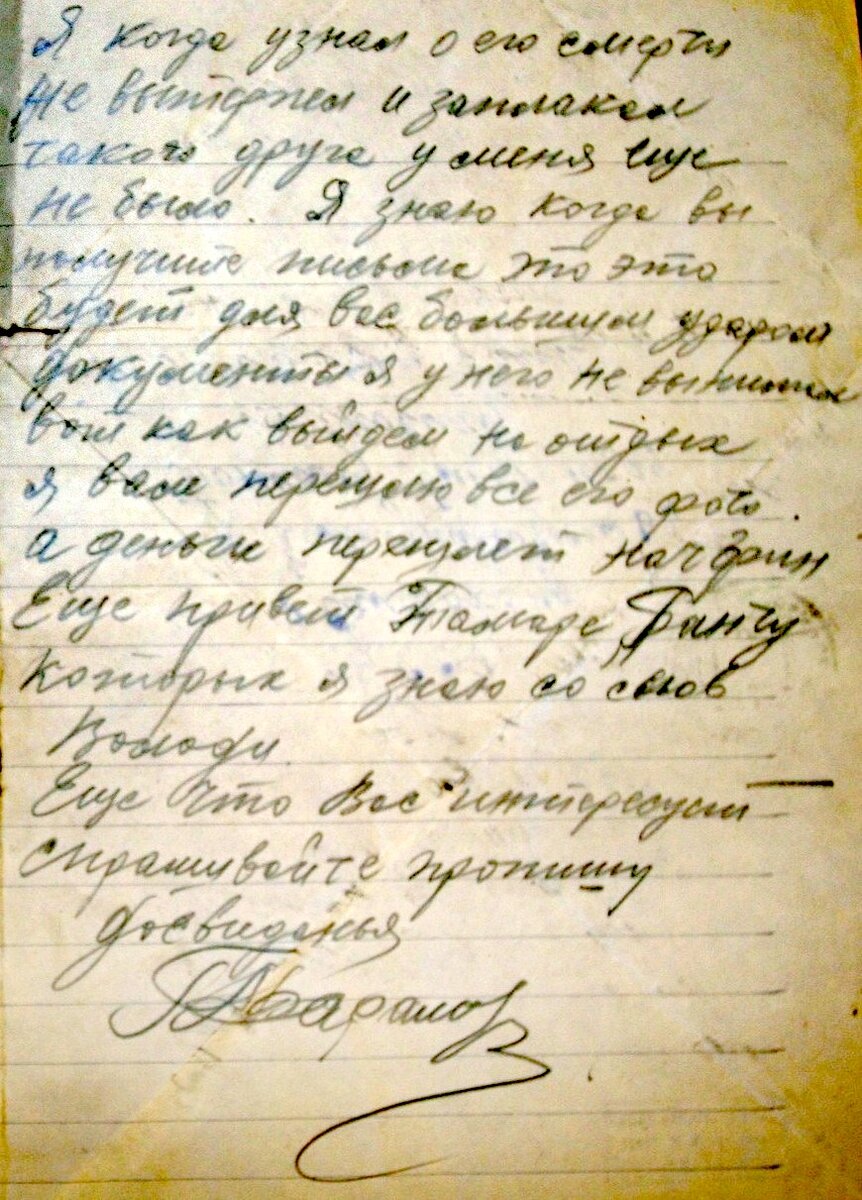 Я когда узнал о его смерти
не вытержел и заплакал
такого друга у меня еще
не было. Я знаю когда вы
получите письмо это это
будет для вас большим ударом
документы я у него не вынимал
вот как выйдем на отдых
я вам перешлю все его фото.
а деньги перешлет начфин
Еще привет Тамаре
которых я знаю со слов
Володи.
Еще что Вас интересует
спрашивайте пропишу
досвиданья